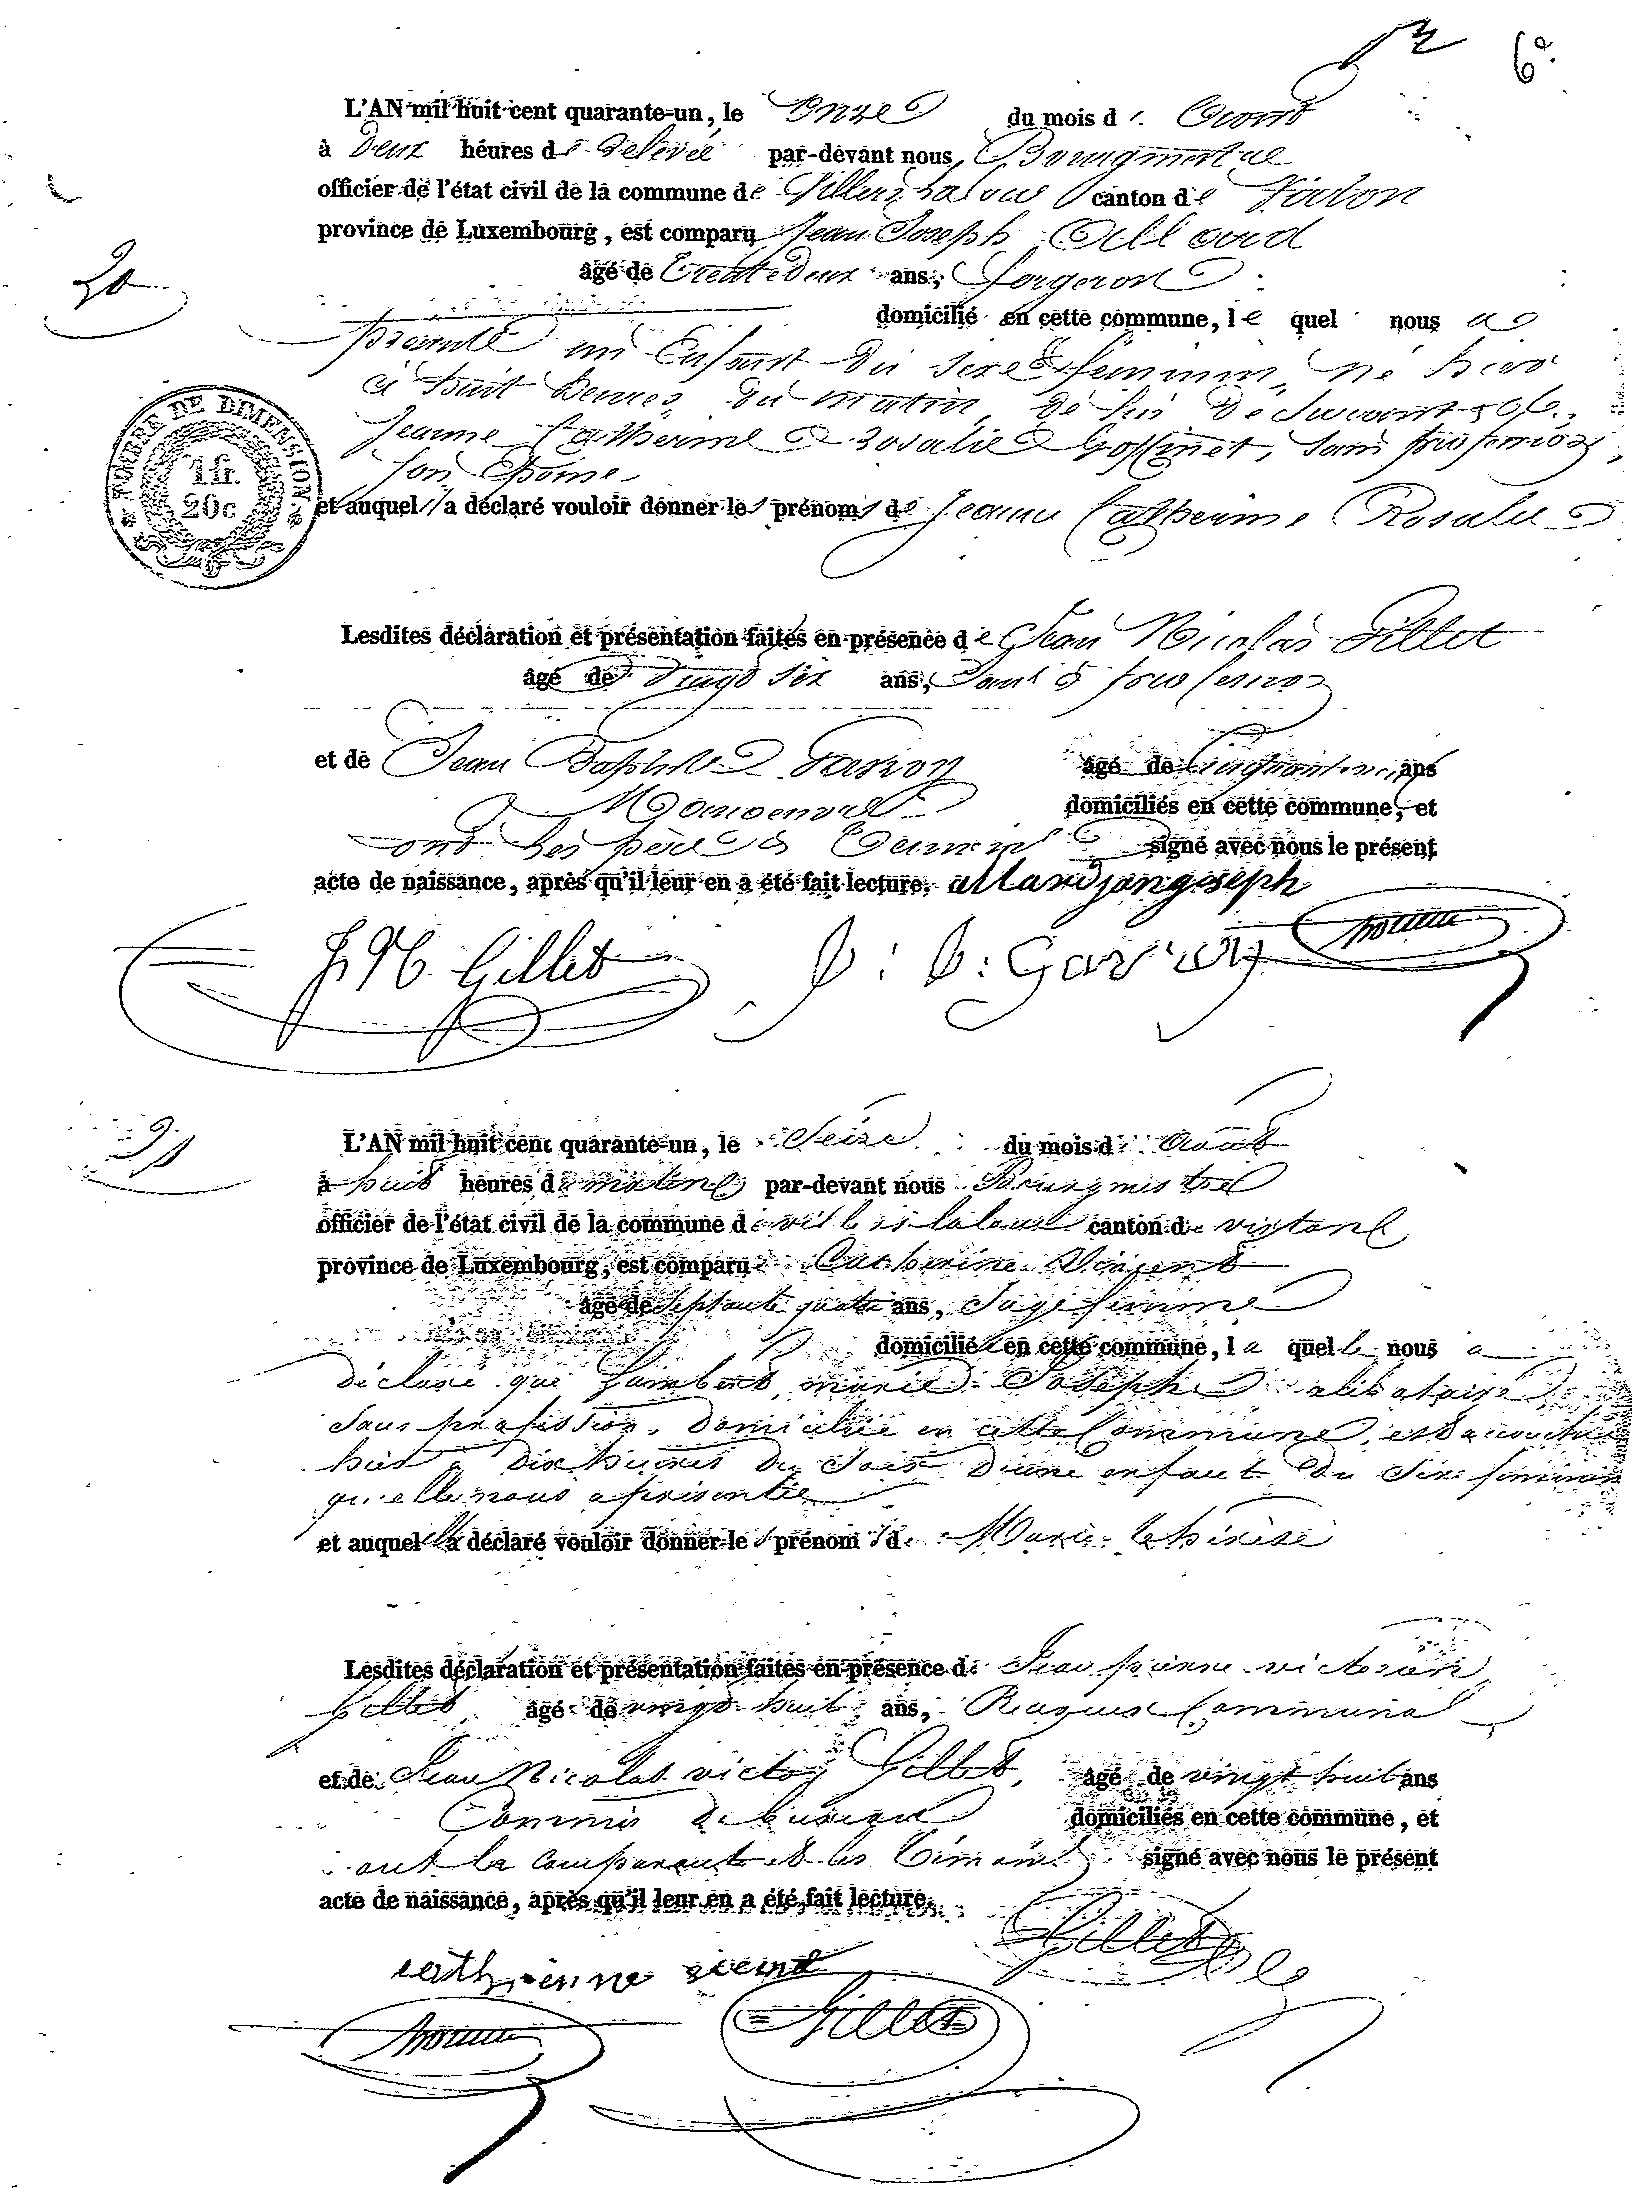 6e.
L'AN mil huit cent quarante-un, le Onze du mois d' Août
à Deux heures de Relevée par-devant nous, Bourgmestre
officier de l'état civil de la commune de Villers la loue canton de Virton
province de Luxembourg, est comparu Jean Joseph Allard
âgé de Trente Deux ans, forgeron
20
domicilié en cette commune, le quel nous a
présenté un Enfant du sexe féminin, né hier
à huit heures du matin, de lui Déclarant & de
Jeanne Catherine Rosalie Goffinet, sans profession,
son Epouse
TIMBRE DE DIMENSION
1 fr.
20 c
et auquel il a déclaré vouloir donner les prénoms de Jeanne Catherine Rosalie
Lesdites déclaration et présentation faites en présence de Jean Nicolas Gillet
âgé de Vingt Six ans, Sans profession
et de Jean Baptiste Gavroy âgé de Cinquante neuf ans
Manoeuvre domiciliés en cette commune, et
ont les père & témoins signé avec nous le présent
acte de naissance, après qu'il leur en a été fait lecture. allard jangoseph
J N Gillet J: B: Gavroy
21
L'AN mil huit cent quarante-un, le Seize du mois d' Août
à huit heures du matin par-devant nous Bourgmestre
officier de l'état civil de la commune de villers la loue canton de virton
province de Luxembourg, est comparu Catherine Vincent
âgé de Septante quatre ans, Sage femme
domiciliée en cette commune, la quelle nous a
déclaré que Lambert, marie Josephe célibataire,
Sans profession, domiciliée en cette Commune, est accouchée
hier à dix heures du Soir d'une enfant du Sexe féminin
qu'elle nous a présentée
et auquel elle a déclaré vouloir donner les prénoms de Marie thérèse
Lesdites déclaration et présentation faites en présence de Jean pierre victorin
Gillet âgé de vingt huit ans, Receveur Communal
et de Jean Nicolas victor Gillet, âgé de vingt huit ans
Commis de bureau domiciliés en cette commune, et
ont la comparante et les témoins signé avec nous le présent
acte de naissance, après qu'il leur en a été fait lecture.
Gillet
Gillet